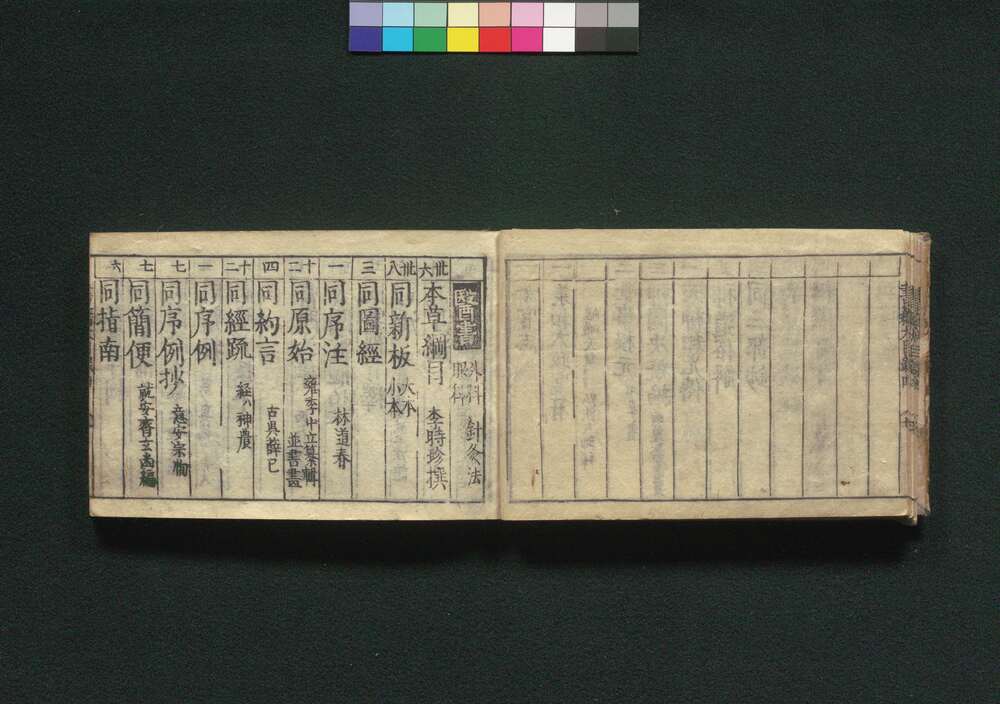 醫書 外科 眼科 針灸法
卅六 本草綱目 李時珍撰
卅八 同新板 大本 小本
三 同圖經
一 同序注 林道春
十二 同原始 雍李中立纂輯 並書畫
四 同約言 古呉薜已
十二 同經疏 経ハ神農
一 同序例
七 同序例抄 意安宗恂
七 同簡便 就安齋玄幽編
六 同指南